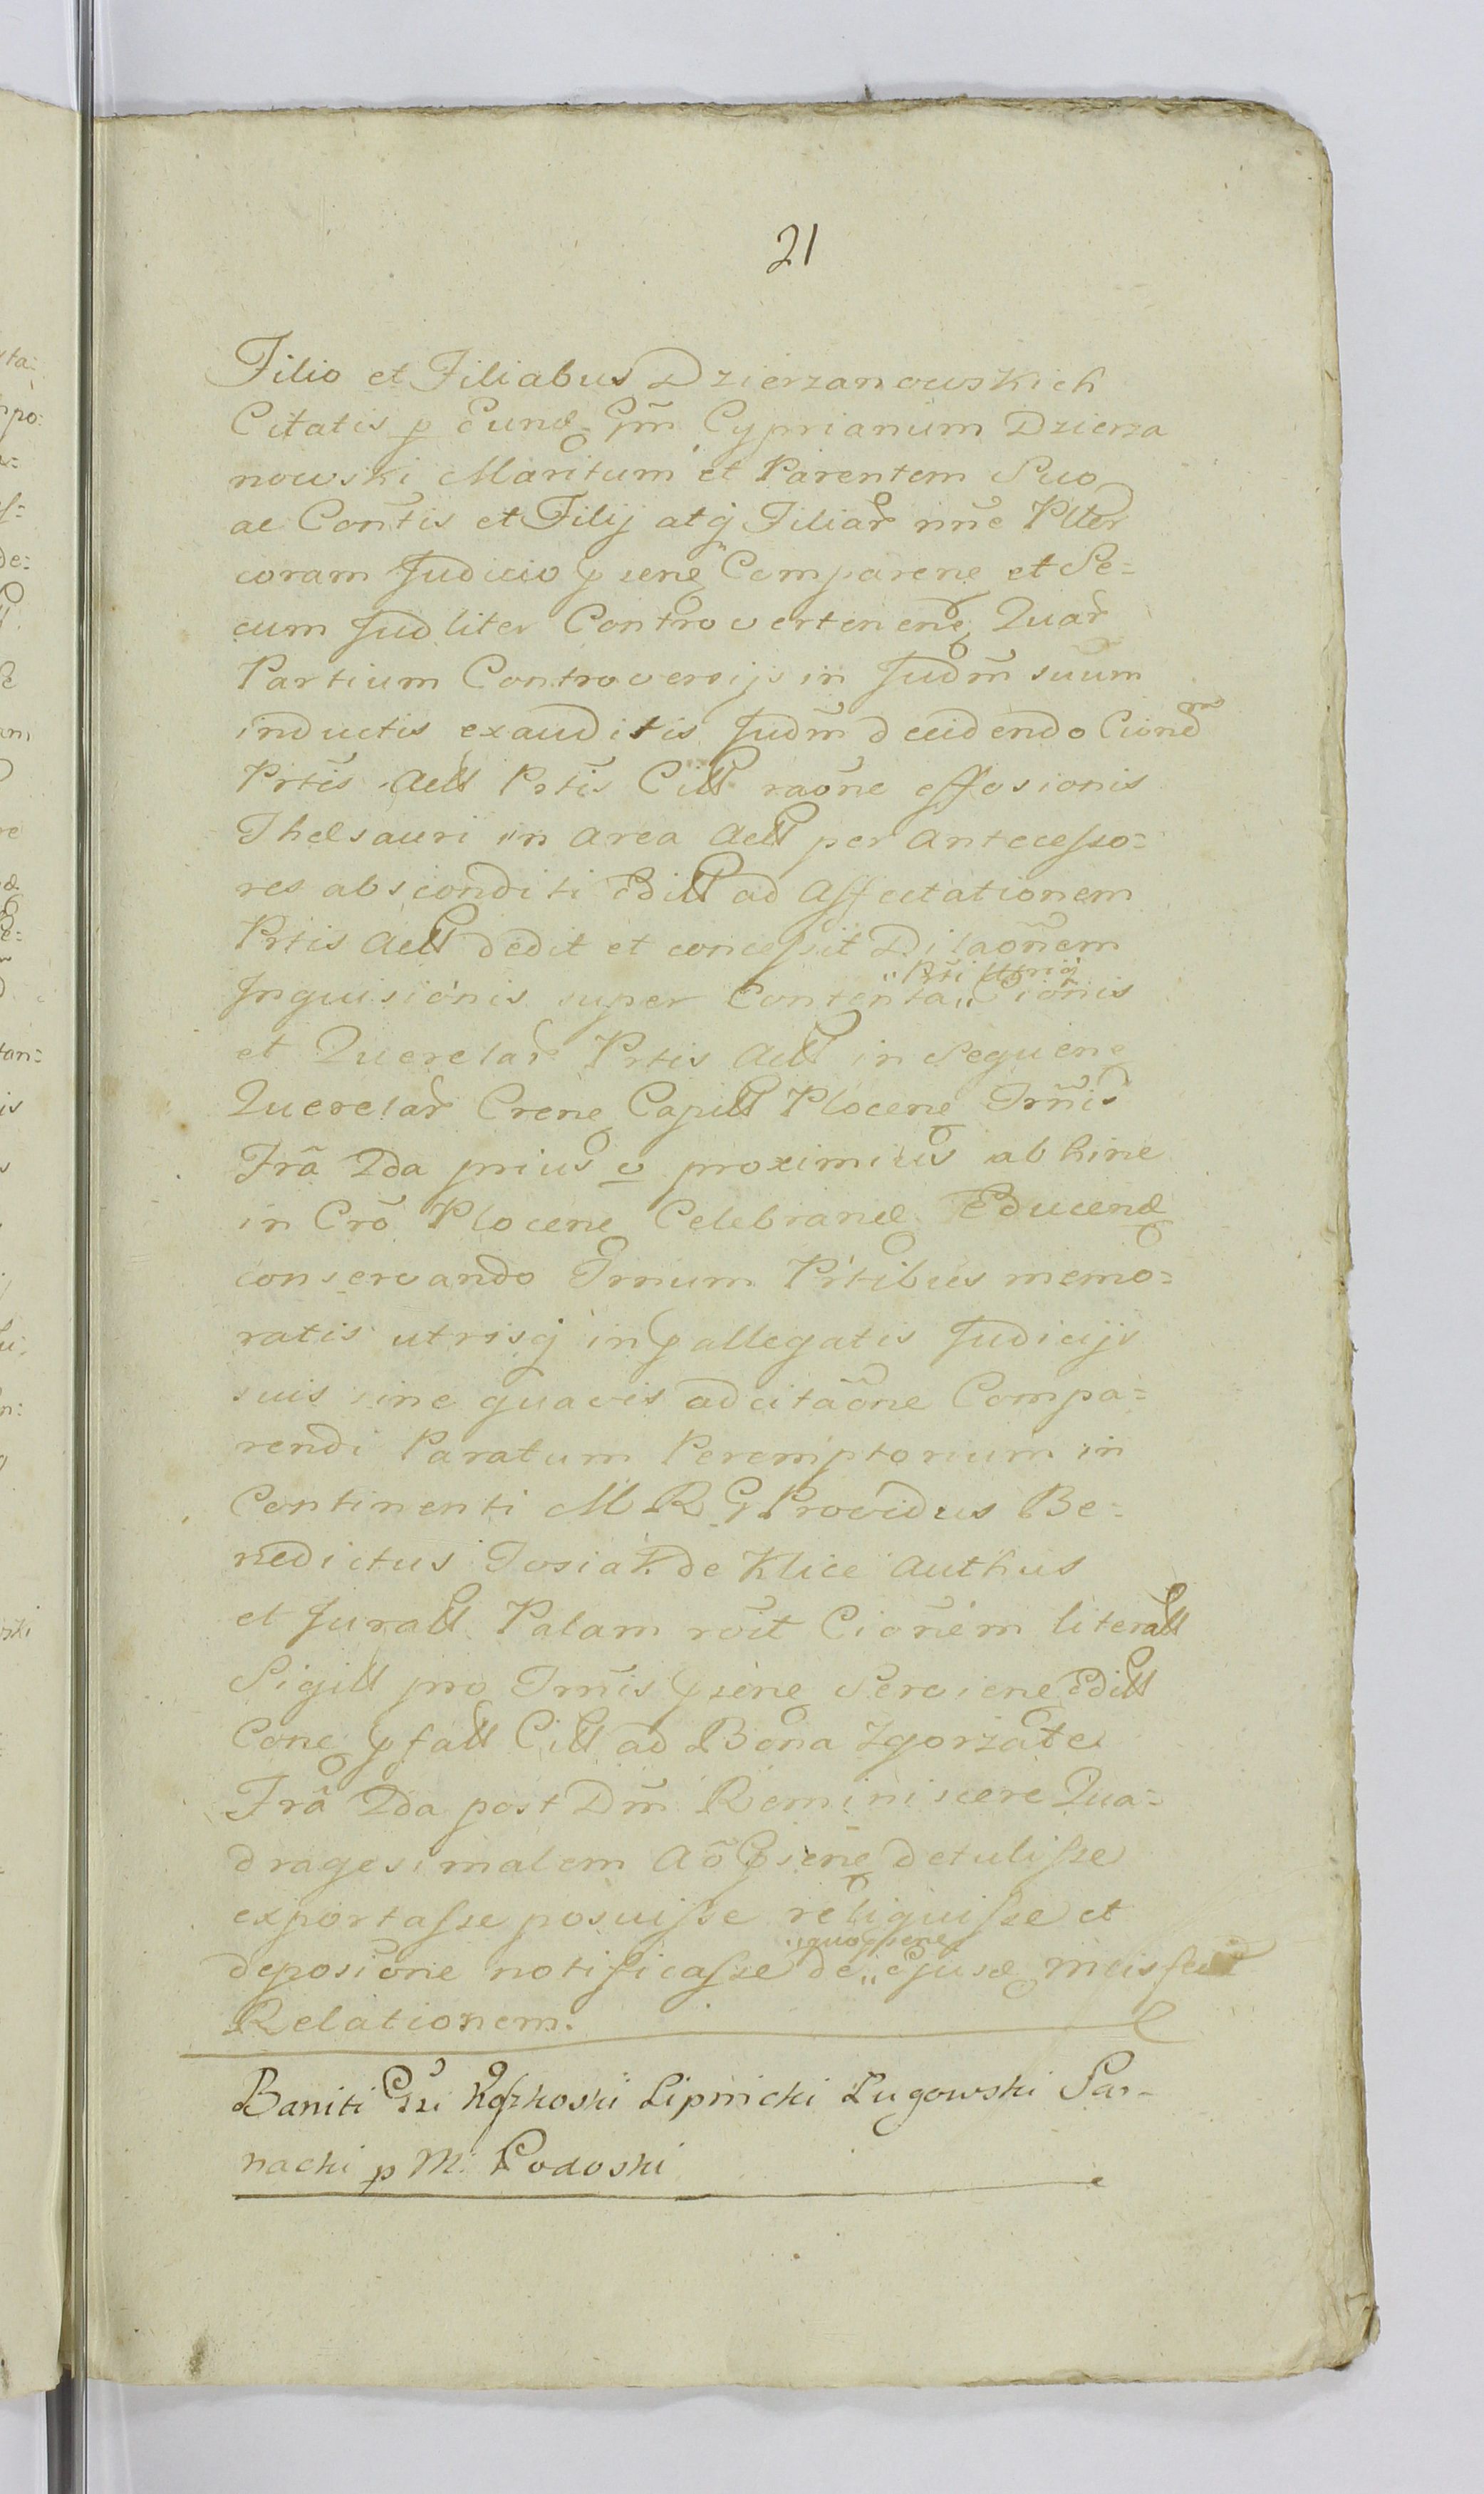 21
Filio et Filiabus Dzierzanowskich
Citatis p Eund Gm̃ Cyprianum Dzierza
nowski Maritum et Parentem Suo
ac Cont̃is et Filij atq Filiar nñc Plter
coram Judicio psene Comparene et Se=
cum Judliter Controvertenene Quar
Partium Controversijs in Judm̃ suum
inductis exauditis Judm̃ decidendo Cionem
Prt̃is Actt Prt̃is Citt raõne effosionis
Thesauri in area Actt per Antecesso=
res absconditi Editt ad Affectationem
Prtis Actt dedit et concessit Dilaõnem
Inquisiónis super Contenta „ Ciõnis
„ Prti Utriq
et Querelar Prtis Actt in Sequene
Querelar Crene Capitt Plocene Trm̃is
Frã 2da prius v proximius abhinc
in Crõ Plocene Celebrand Educend
conservando Trnum Prtibus memo=
ratis utrisq in pallegatis Judicijs
suis sine quavis adcitaõne Compa=
rendi Paratum Peremptorium in
Continenti M R G Providus Be=
nedictus Tosiak de Klice Authus
et Juratt Palam rõit Ciõnem literatt
Sigitt pro Trm̃is psene Serviene Editt
Cone pfatt Citt ad Bona Zgorzate
Frã 2da post Dm̃ Reminiscere Qua=
dragesimalem Aõ psene detulisse
exportasse posuisse reliquisse et
deposiõne notificasse de „ ejusd
„ quo psene
Relationem.
Baniti Gsi Lipnicki Zugowski Sar-
nacki p M. Podoski